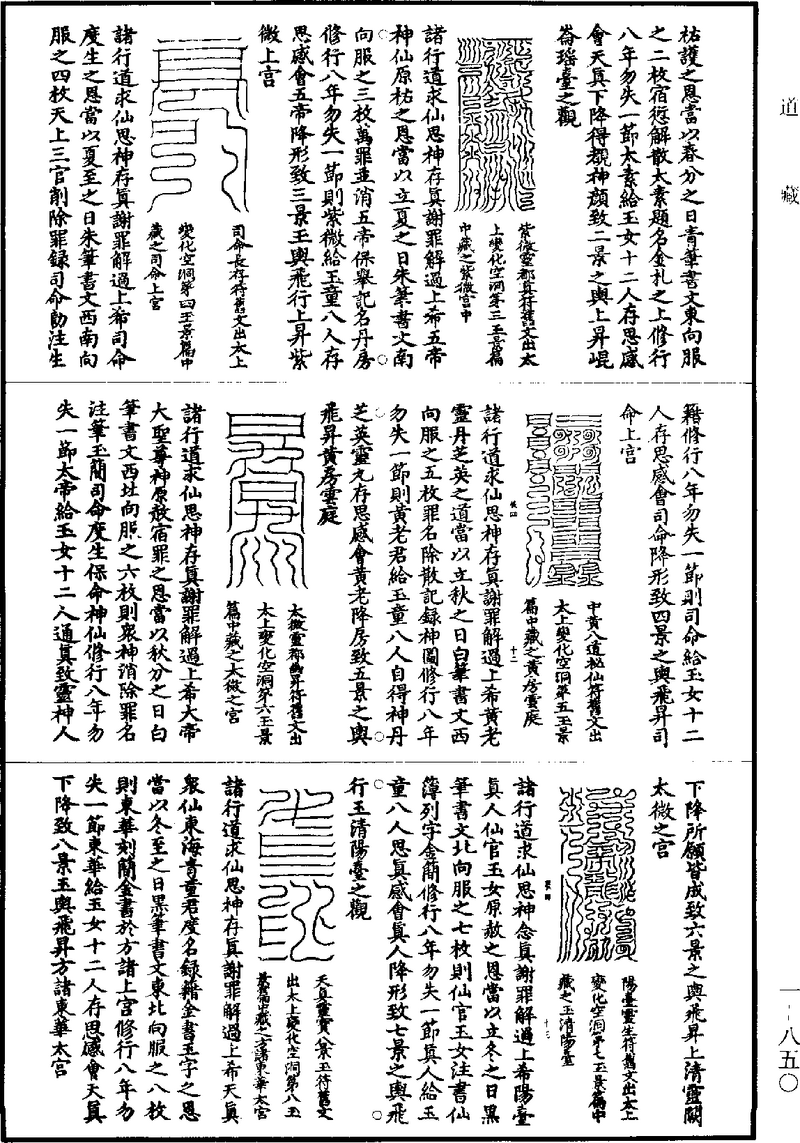 道藏
祐護之恩當以春分之日青筆書文東向服
之二枚宿愆解散太素題名金札之上修行
八年勿失一節太素給玉女十二人存思感
會天真下降得覩神顏致二景之輿上昇崐
崙瑤臺之觀
紫微靈都真符舊文出太
上變化空洞第三玉景篇
中藏之紫微宮中
諸行道求仙思神存真謝罪解過上希五帝
神仙原祐之恩當以立夏之日朱筆書文南
向服之三枚萬罪並消五帝保舉記名丹房
修行八年勿失一節則紫微給玉童八人存
思感會五帝降形致三景玉輿飛行上昇紫
微上宮
司命長存符舊文出太上
變化空洞第四玉景篇中
藏之司命上宮
諸行道求仙思神存真謝罪解過上希司命
度生之恩當以夏至之日朱筆書文西南向
服之四枚天上三官削除罪録司命勒注生
籍修行八年勿失一節則司命給玉女十二
人存思感會司命降形致四景之輿飛昇司
命上宮
中黃八道祕仙符舊文出
太上變化空洞第五玉景
篇中藏之黃房雲庭
諸行道求仙思神存真謝罪解過上希黃老
靈丹芝英之道當以立秋之日白筆書文西
向服之五枚罪名除散記録神圖修行八年
勿失一節則黃老君給玉童八人自得神丹
芝英靈丸存思感會黃老降房致五景之輿
飛昇黃房雲庭
十二
太微靈都幽昇符舊文出
太上變化空洞第六玉景
篇中藏之太微之宮
諸行道求仙思神存真謝罪解過上希大帝
大聖尊神原赦宿罪之恩當以秋分之日白
筆書文西北向服之六枚則衆神消除罪名
注筆玉簡司命度生保命神仙修行八年勿
失一節太帝給玉女十二人通真致靈神人
下降所願皆成致六景之輿飛昇上清靈闕
太微之宮
陽臺靈生符舊文出太上
變化空洞第七玉景篇中
藏之玉清陽臺
十三
諸行道求仙思神念真謝罪解過上希陽臺
真人仙官玉女原赦之恩當以立冬之日黑
筆書文北向服之七枚則仙官玉女注書仙
簿列字金簡修行八年勿失一節真人給玉
童八人思真感會真人降形致七景之輿飛
行玉清陽臺之觀
天真靈寶八景玉符舊文
出太上變化空洞第八玉
景篇中藏之方諸東華太宮
諸行道求仙思神存真謝罪解過上希天真
衆仙東海青童君度名録籍金書玉字之恩
當以冬至之日黑筆書文東北向服之八枚
則東華刻簡金書於方諸上宮修行八年勿
失一節東華給玉女十二人存思感會天真
下降致八景玉輿飛昇方諸東華太宮
一--八五〇